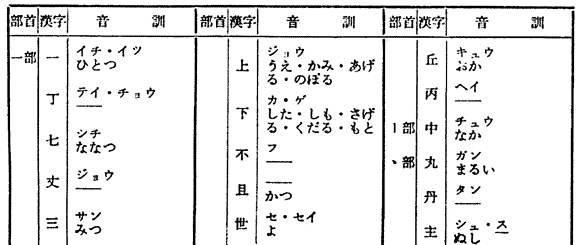 部首 漢字 音 訓
一部 一 イチ・イツ
ひとつ
丁 テイ・チョウ
——
七 シチ
ななつ
丈 ジョウ
——
三 サン
みつ
部首 漢字 音 訓
上 ジョウ
うえ・かみ・あげ
る・のぼる
下 カ・ゲ
した・しも・さげ
る・くだる・もと
不 フ
——
且 ——
かつ
世 セ・セイ
よ
部首 漢字 音 訓
丘 キュウ
おか
丙 ヘイ
——
丨部 中 チュウ
なか
丶部 丸 ガン
まるい
丹 タン
——
主 シュ・ス
ぬし